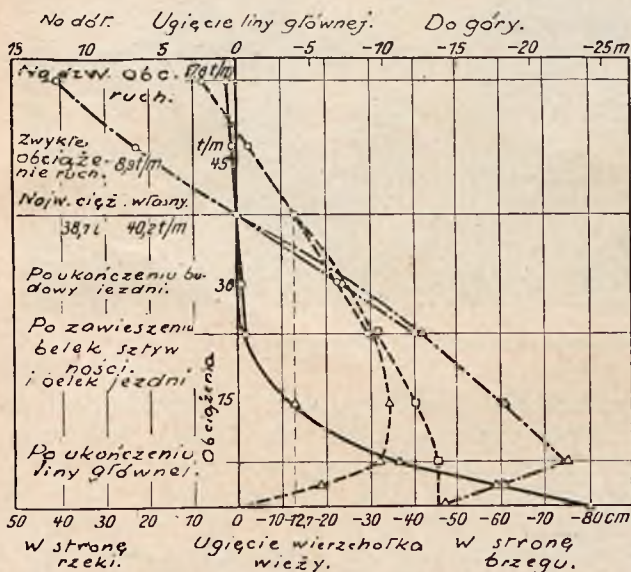 Na dół. Ugięcie liny głównej. Do góry.
15 10 5 0 -5 -10 -15 -20 -25 m
Najzw. obc. ruch. 17,8 t/m
Zwykłe obciąże- 8,9 t/m
nie ruch.
t/m
45
Najw. cięż. własny.
40,2 t/m
Po ukończeniu bu-
dowy jezdni.
30
Po zawieszeniu
belek sztyw
ności.
i belek jezdni
15
Obciążenia
Po ukończeniu
liny głównej.
50 40 30 20 10 0 -10 -12,7 -20 -30 -40 -50 -60 -70 -80 cm
W stronę rzeki. Ugięcie wierzchołka wieży. W stronę brzegu.